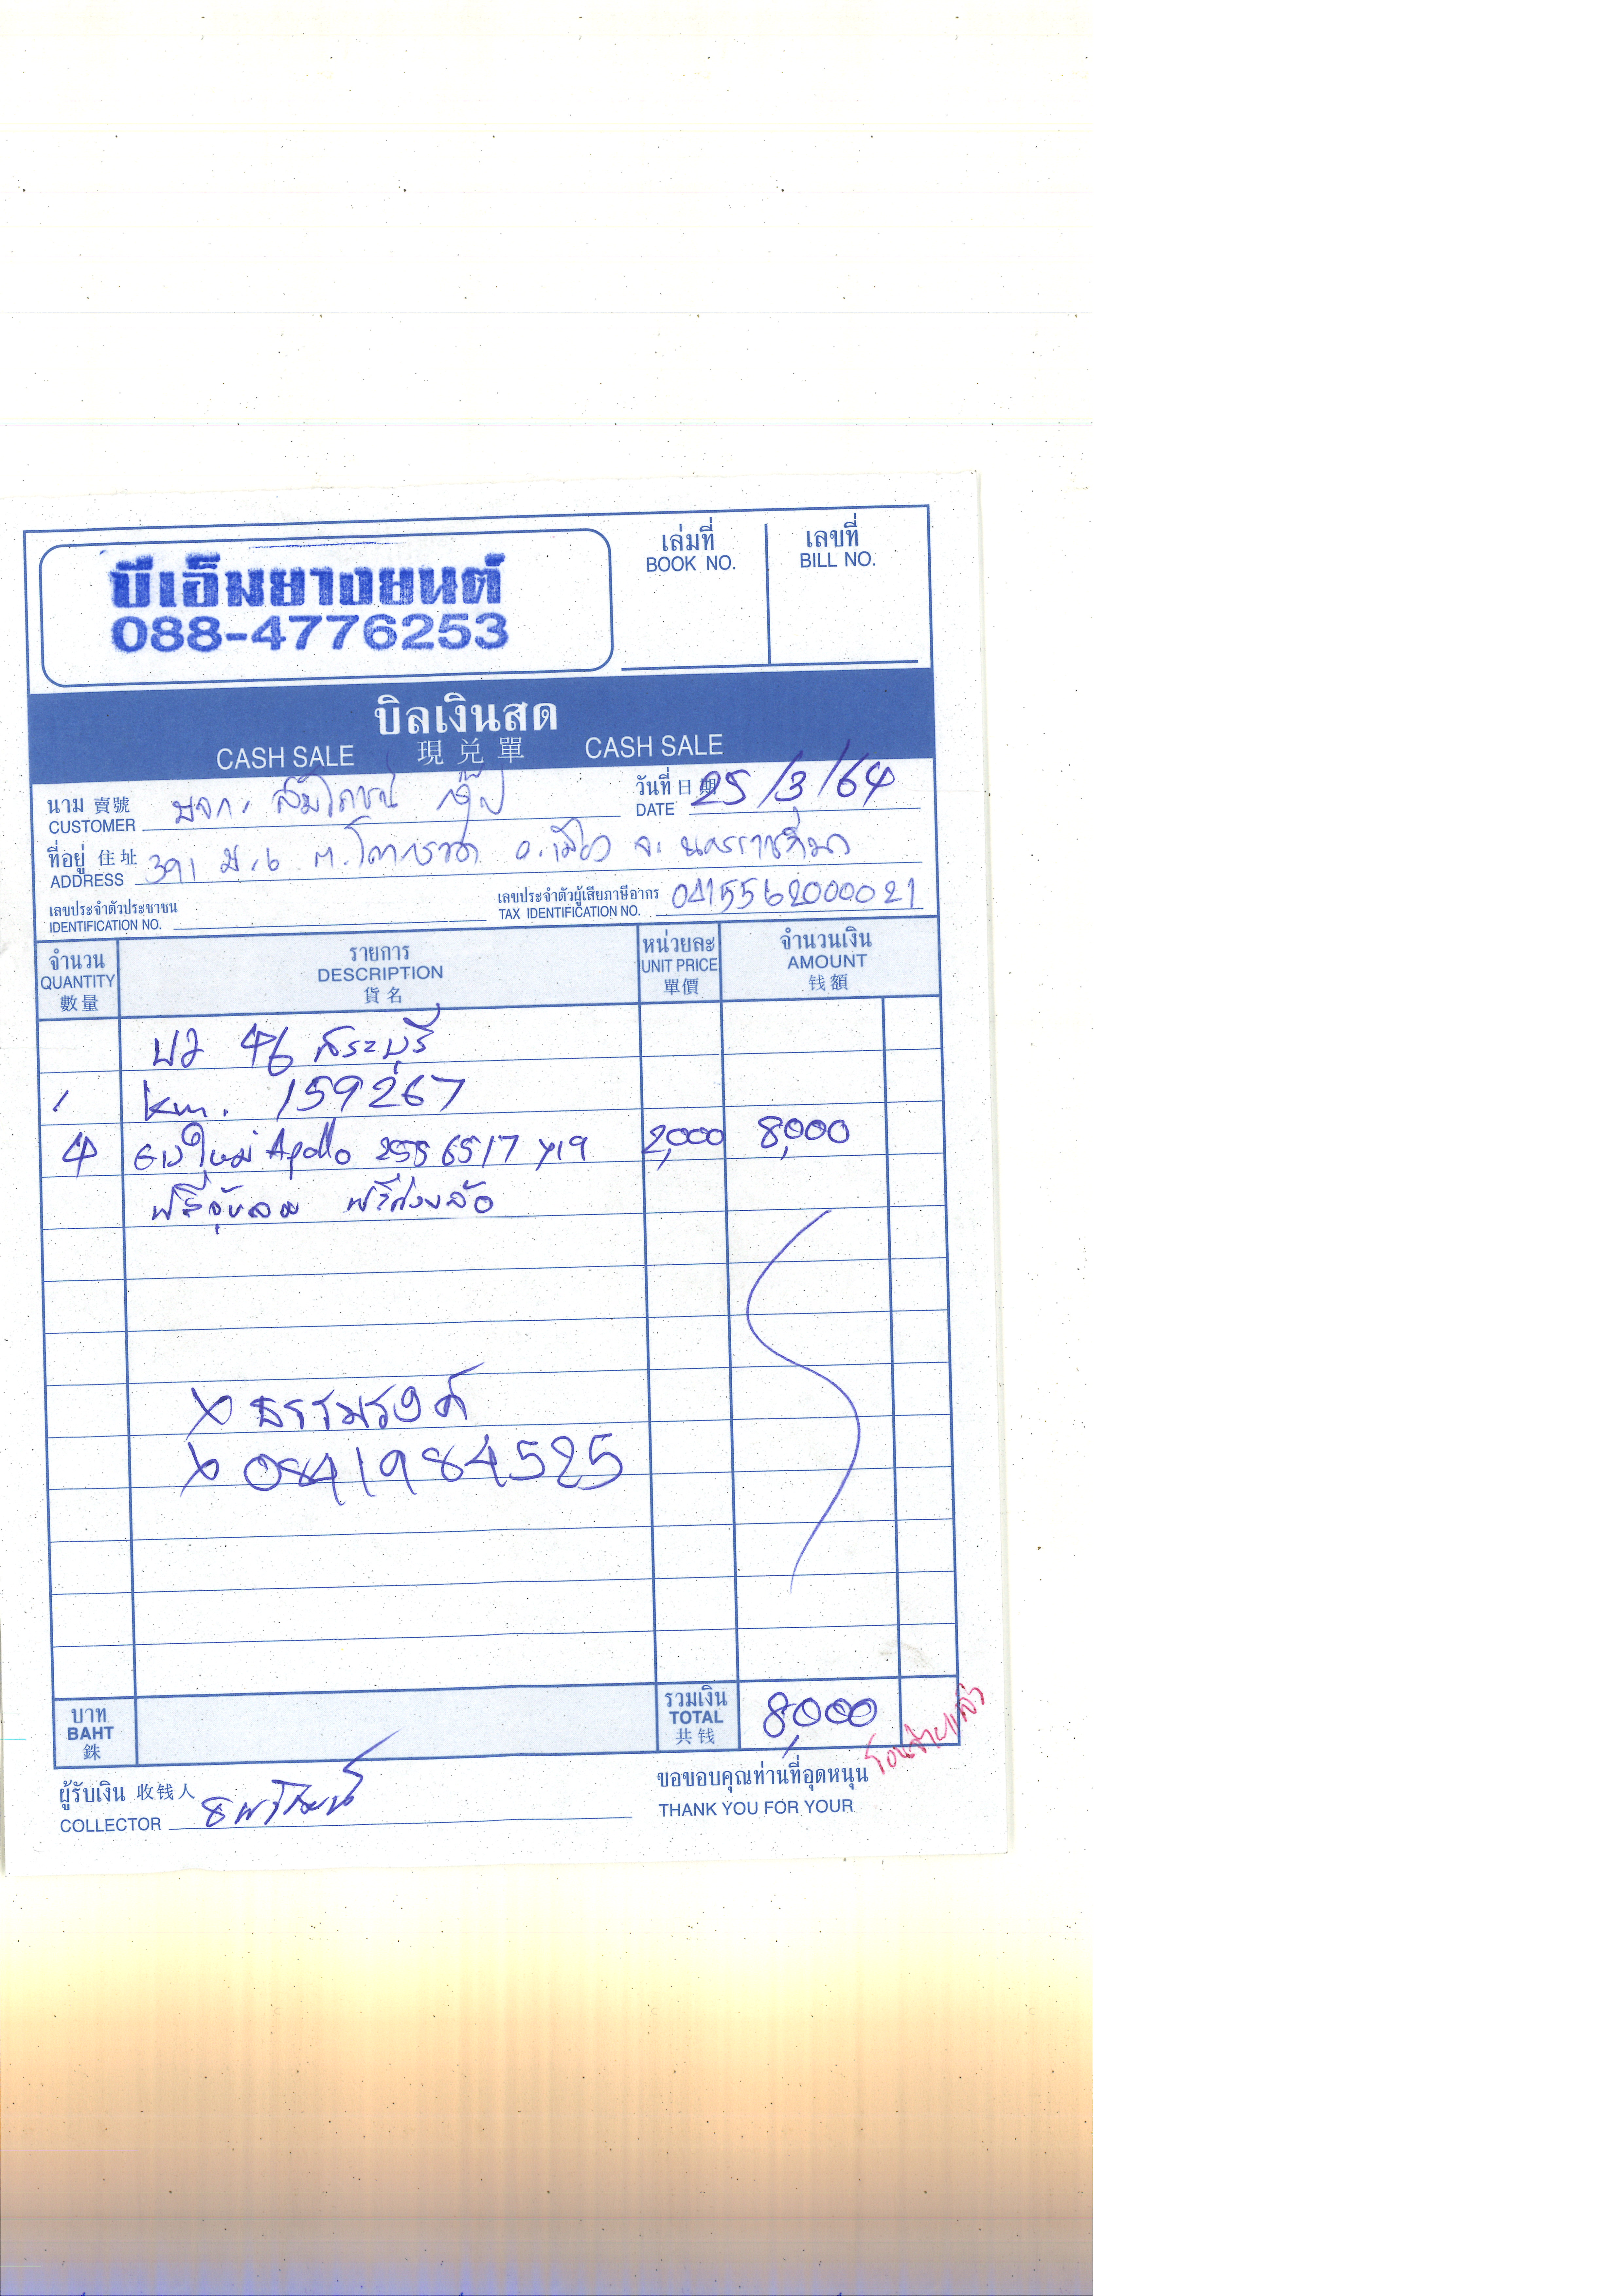 บีเอ็มยางยนต์
088-4776253
เล่มที่
BOOK NO.
เลขที่
BILL NO.
บิลเงินสด
CASH SALE 現兑單 CASH SALE
นาม 賣號 หจก. สัมโภชน์ กรุ๊ป
CUSTOMER
วันที่ 日期 25/3/64
DATE
ที่อยู่ 住址 391 ม.6 ต.โคกกรวด อ.เมือง จ.นครราชสีมา
ADDRESS
เลขประจำตัวประชาชน
IDENTIFICATION NO.
เลขประจำตัวผู้เสียภาษีอากร 0415562000021
TAX IDENTIFICATION NO.
จำนวน
QUANTITY
數量
รายการ
DESCRIPTION
貨名
หน่วยละ
UNIT PRICE
單價
จำนวนเงิน
AMOUNT
钱額
46 สระบุรี
km. 159267
4 ยางใหม่ Apollo 255 65/17 Y19 2,000 8,000
X ธรรมรงค์
X 0841984525
บาท
BAHT
銖
รวมเงิน
TOTAL
共钱
8,000
โอนจ่ายแล้ว
ผู้รับเงิน 收钱人
COLLECTOR
ขอขอบคุณท่านที่อุดหนุน
THANK YOU FOR YOUR